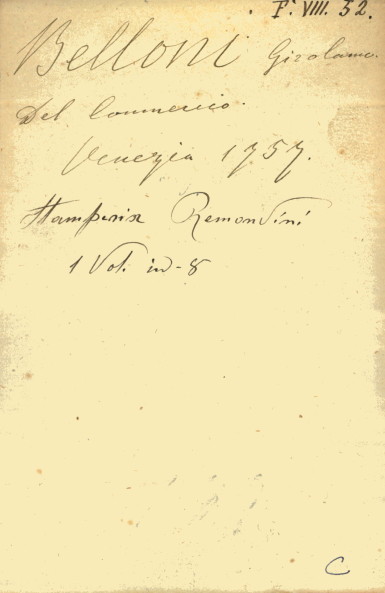 F. VIII. 52.
Belloni Girolamo.
Del Commercio.
Venezia 1757.
Stamperia Remondini
1 Vol. in-8
C